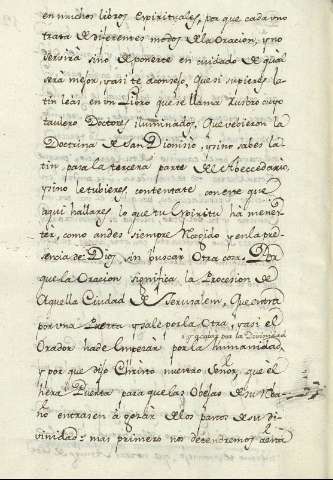 en muchos libros Espirituales, por que cada uno
trata de diferentes modos de la Oracion, y no
serbirá sino de ponerte en cuidado de qual
será mejor, y asi te aconsejo, Que si supieres la-
tin leas, en un Libro que se llama
Doctores iluminados, Que vebieron la
Doctrina de San Dionisio, y sino sabes la-
tin, para la tercera parte de el Abecedario,
y sino le tubieres, contentate con este que
aqui hallares lo que tu Espiritu há menes-
ter, como andes siempre Recogido y en la pre-
sencia de Dios, sin buscar Otra cosa. Por
que la Oracion significa la Procesion de
Aquella Ciudad de Jerusalem, Que entra
por una Puerta y sale por la Otra, y asi el
y acabar por la Divinidad
Orador há de Empezar por la humanidad
y por que dijo Christo nuestro Señor, que el
hera Puerta para que las Obejas de su Reba-
ño entrasen á gozar de los pastos de su di-
vinidad: mas primero nos detendremos en la